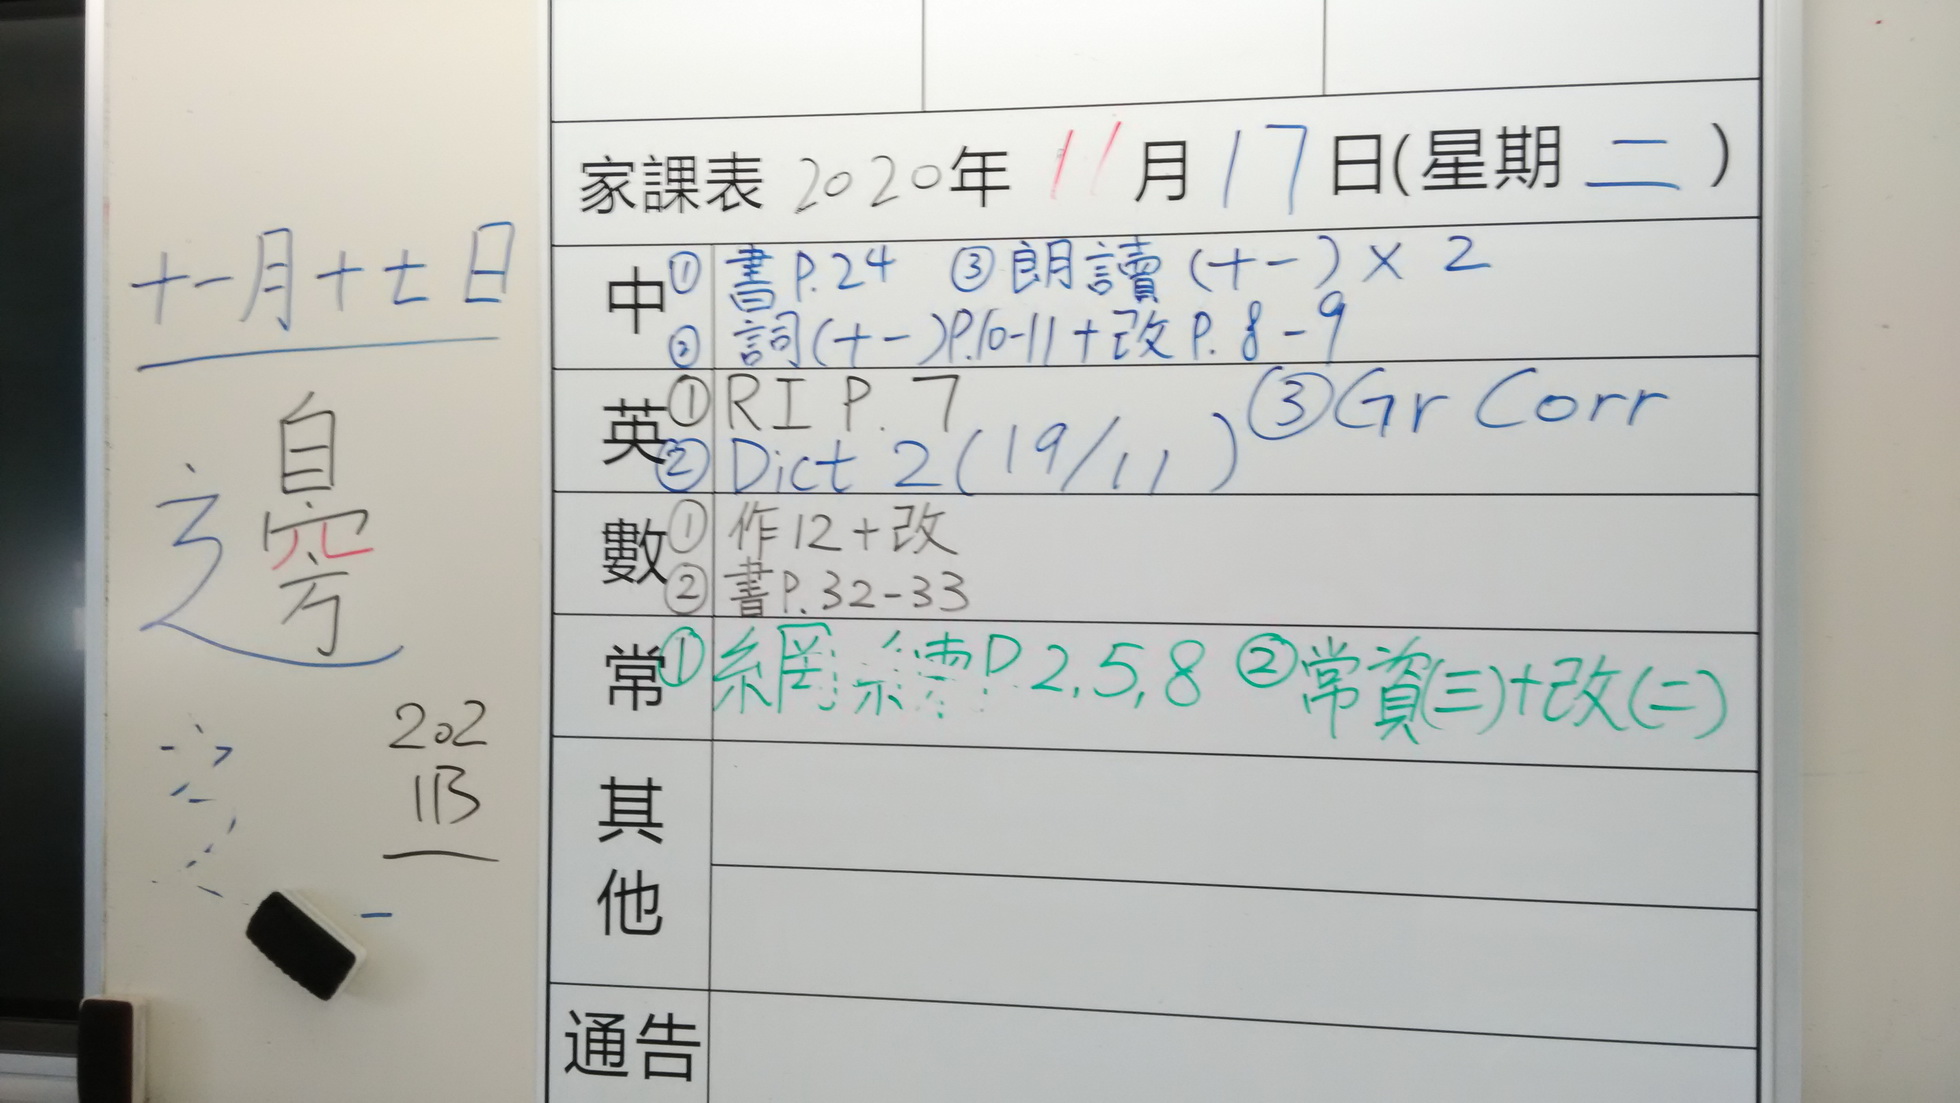 十一月十七日
邊
202
1B
家課表 2020年 11月 17日(星期 二 )
中 ① 書P.24 ③ 朗讀 (十一) × 2
② 詞(十一)P.10-11+改P.8-9
英 ① RI P.7 ③ Gr Corr
② Dict 2 (19/11)
數 ① 作12+改
② 書P.32-33
常 ① 網 P.2,5,8 ② 常資(三)+改(二)
其他
通告